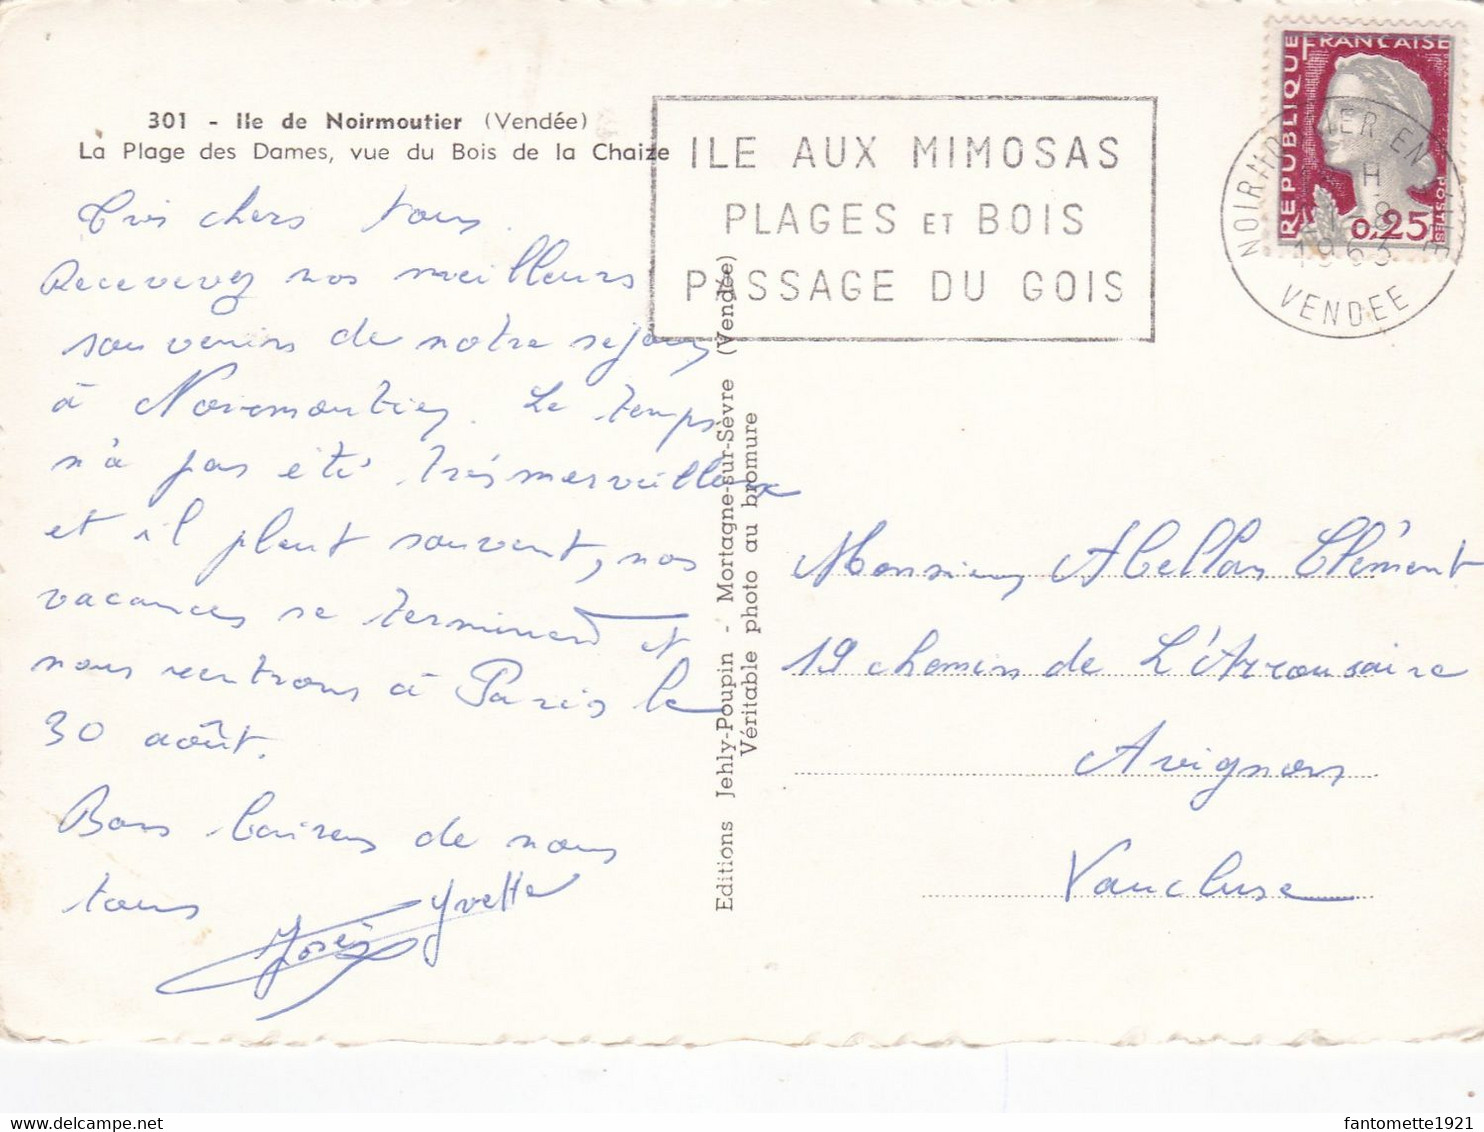 301 - Ile de Noirmoutier (Vendée)
La Plage des Dames, vue du Bois de la Chaize
ILE AUX MIMOSAS
PLAGES ET BOIS
PASSAGE DU GOIS
REPUBLIQUE FRANCAISE
POSTES
0,25
NOIRMOUTIER EN L'ILE
1963
VENDEE
Très chers tous.
Recevez nos meilleurs
souvenirs de notre séjour
à Noirmoutier. Le temps
n'a pas été très merveilleux
et il pleut souvent, nos
vacances se terminent et
nous rentrons à Paris le
30 août.
Bons baisers de nous
tous
Yvette
Editions Jehly-Poupin - Mortagne-sur-Sèvre (Vendée)
Véritable photo au bromure
Monsieur Abellan Clément
19 chemin de L'Arrousaire
Avignon
Vaucluse
fantomette1921